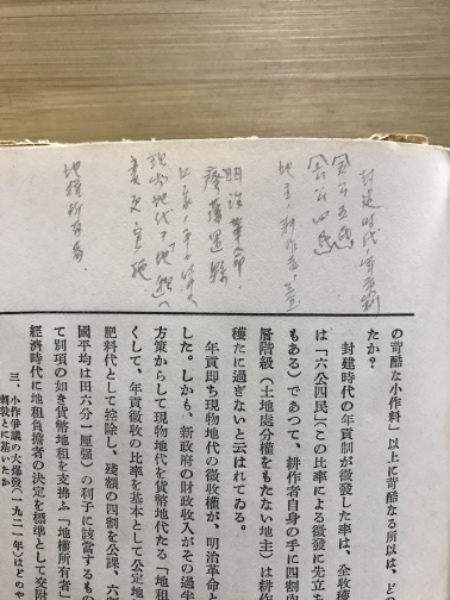 封建時代ノ年貢制
六公四民
明治革命
廃藩置縣
現物地代ヲ「地租」ヘ
変更ヲ実施
地権所有者
の苛酷な小作料」以上に苛酷なる所以は、どの
たか？
封建時代の年貢制が徵發した率は、全收穫
は「六公四民」（この比率による徵發に先立ち
もある）であつて、耕作者自身の手に四割內
層階級（土地處分權をもたない地主）は耕作
穫たに過ぎないと云はれてゐる。
年貢卽ち現物地代の徵收權が、明治革命と
した。しかも、新政府の財政收入がその過半
方策からして現物地代を貨幣地代たる「地租
くして、年貢徵收の比率を基本として公定地
肥料代として控除し、殘額の四割を公課、六
國平均は田六分一厘强）の利子に該當するもの
て別項の如き貨幣地租を支拂ふ「地權所有者」
經濟時代に地租負擔者の決定を標準として交附
三、小作爭議の大爆發（一九二一年）はどのや
刺戟とに基いたか